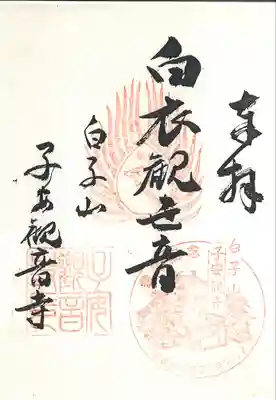 奉拝
白衣観世音
白子山
子安観音寺
白子山
子安観音